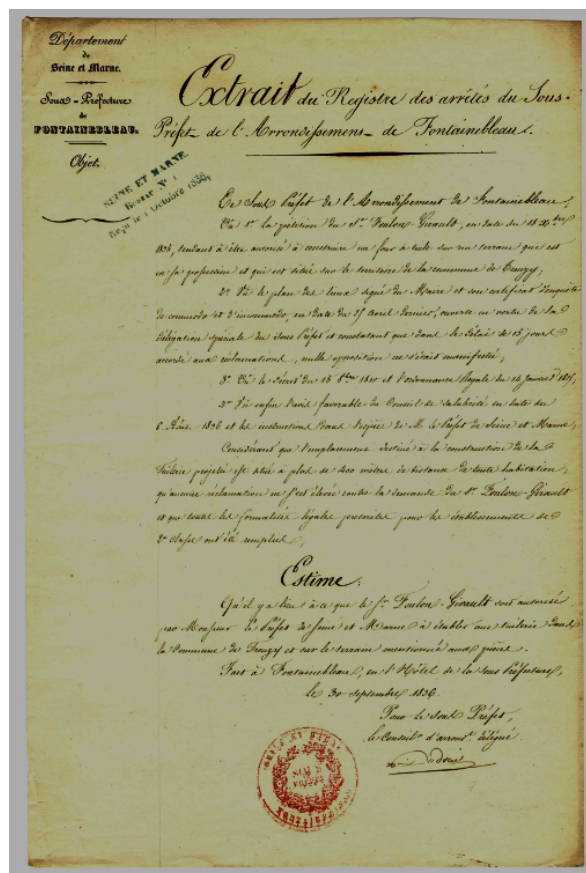 Département
de
Seine et Marne.
Sous-Préfecture
de
FONTAINEBLEAU.
Objet.
SEINE ET MARNE
BUREAU N° 1
Reçu le 1 Octobre 1836,
Extrait du Registre des arrêtés du Sous-
Préfet de l'Arrondissement de Fontainebleau.
Le Sous Préfet de l'Arrondissement de Fontainebleau,
Vu 1° la pétition du Sr. Foulon-Girault, en date du 18
1835, tendant à être autorisé à construire un four à tuile sur un terrain qui est
en sa possession et qui est situé sur le territoire de la commune de
2° Vu le plan des lieux signé du Maire et son certificat d'enquête
de commodo et d'incommodo, en date du 25 avril dernier, ouverte en vertu de la
délégation spéciale du Sous Préfet et constatant que dans le délai de 15 jours
accordé aux réclamations, nulle opposition ne s'était manifestée,
3° Vu le décret du 15 8bre 1810 et l'ordonnance Royale du 14 Janvier 1815,
4° Vu enfin l'avis favorable du Conseil de salubrité en date du
6 Août 1836 et les instructions de M. le Préfet de Seine et Marne,
Considérant que l'emplacement destiné à la construction de la
Tuilerie projetée est situé à plus de mètres de distance de toute habitation,
qu'aucune réclamation ne s'est élevée contre la demande du Sr. Foulon-Girault
et que toutes les formalités légales prescrites pour les établissements de
2e classe ont été remplies,
Estime:
Qu'il y a lieu à ce que le Sr. Foulon-Girault soit autorisé
par Monsieur le Préfet de Seine et Marne à établir une tuilerie dans
la Commune de et sur le terrain mentionné aux pièces.
Fait à Fontainebleau, en l'Hôtel de la Sous Préfecture,
le 30 septembre 1836.
Pour le Sous Préfet,
le Conseiller d'arrondt. délégué.